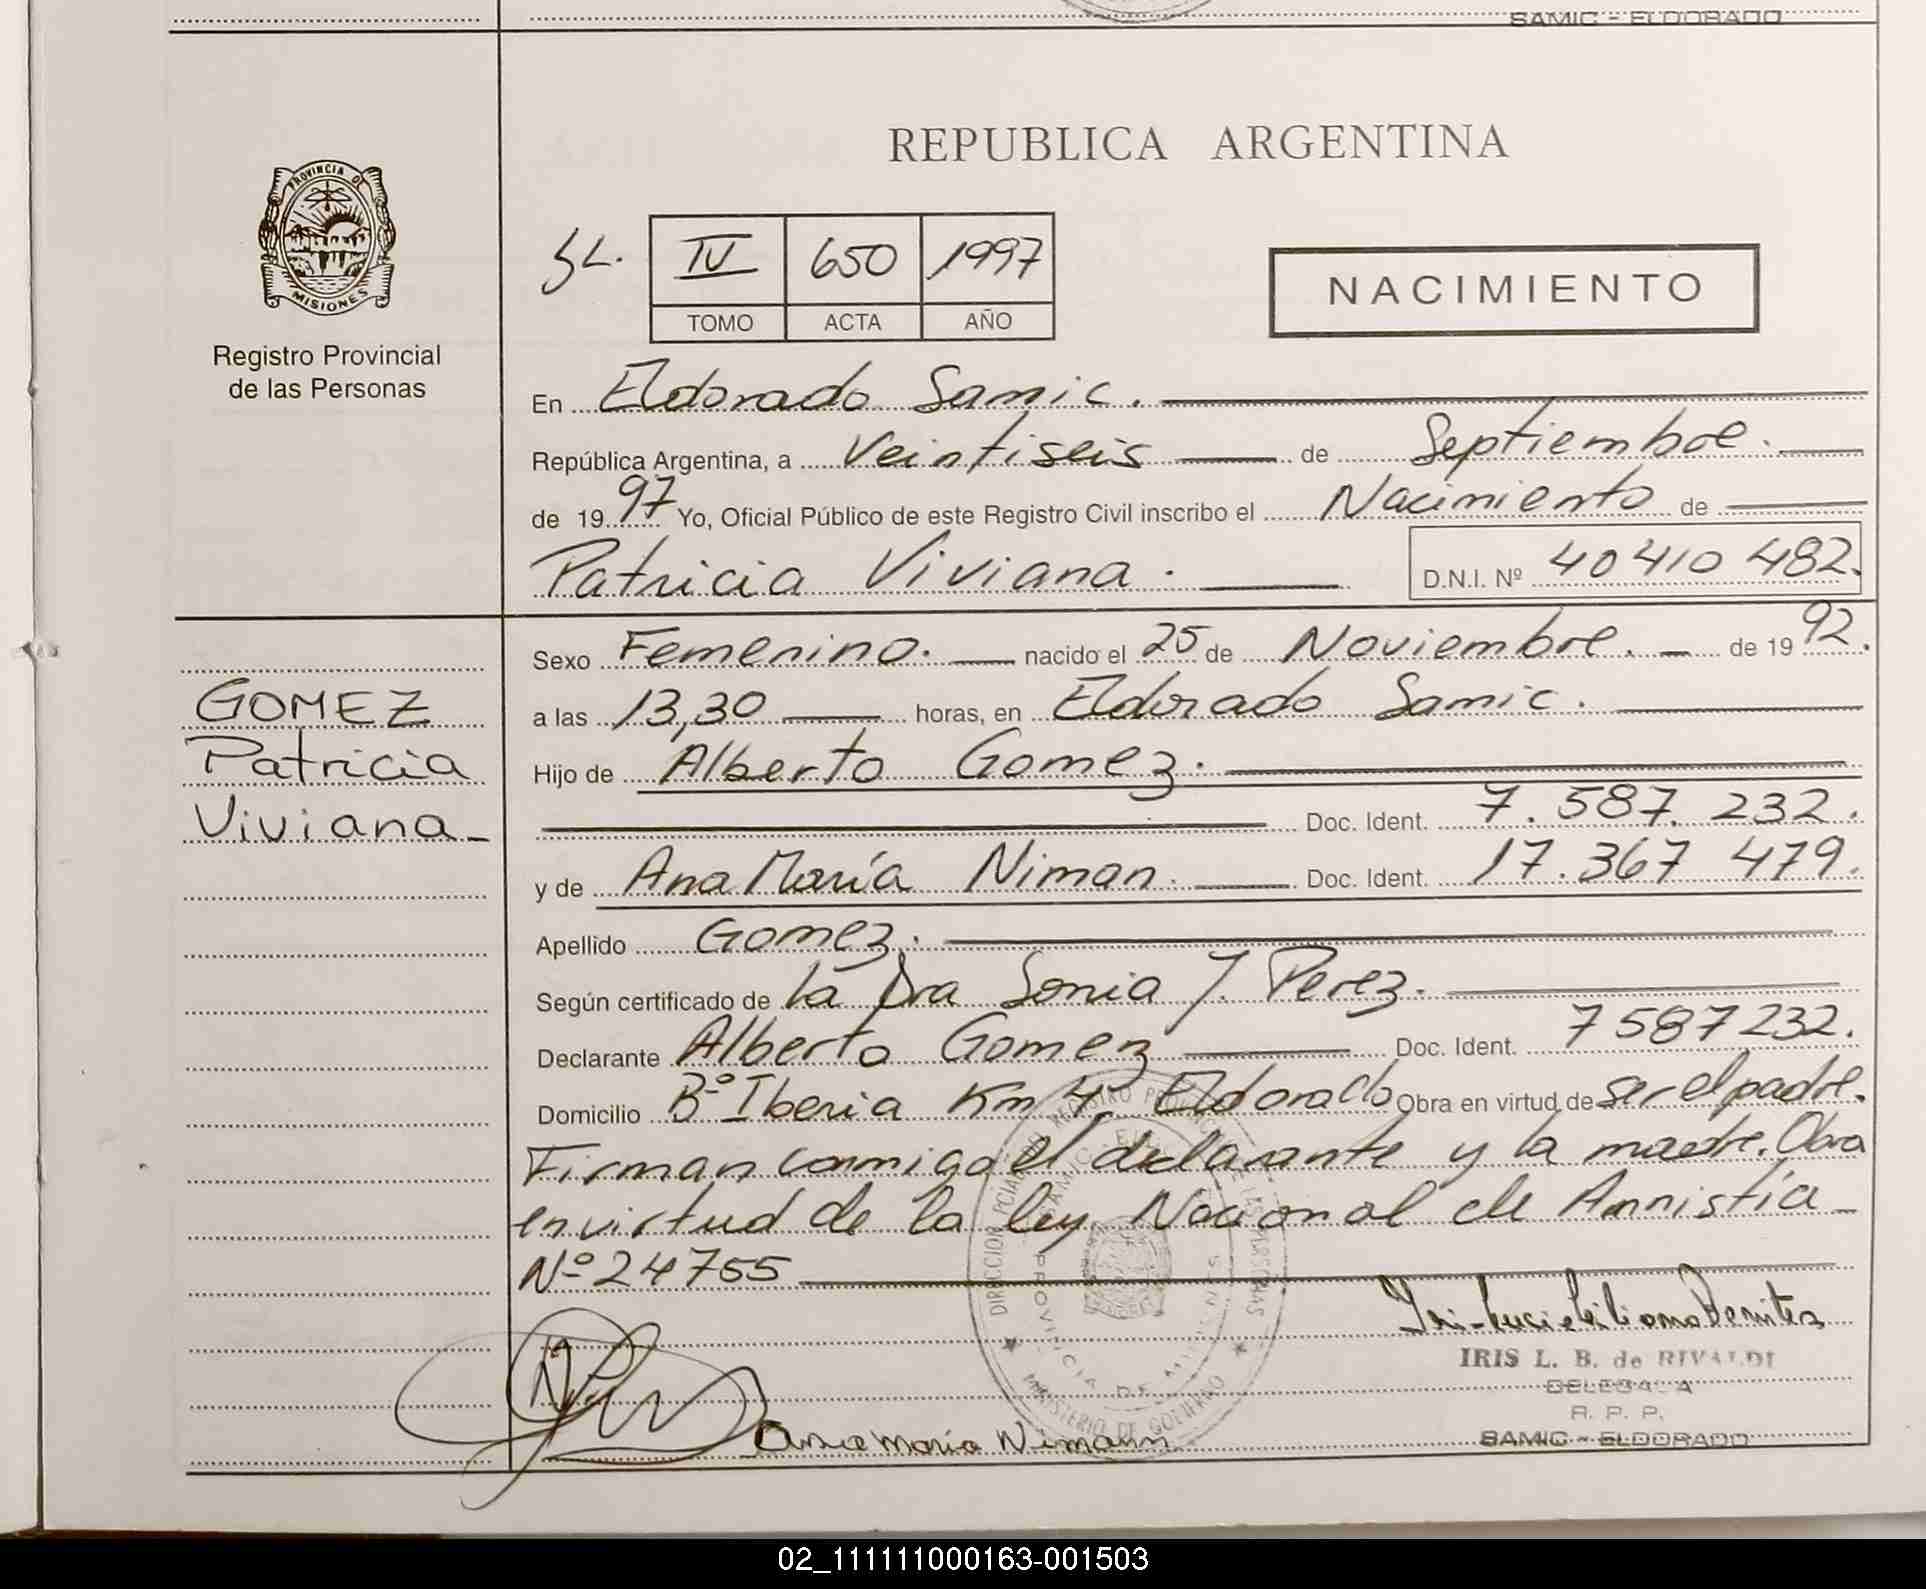 SAMIC - ELDORADO
REPUBLICA ARGENTINA
PROVINCIA DE
MISIONES
Registro Provincial
de las Personas
IV 650 1997
TOMO ACTA AÑO
NACIMIENTO
En Eldorado Samic.
República Argentina, a Veintiseis de Septiembre.
de 1997 Yo, Oficial Público de este Registro Civil inscribo el Nacimiento de
Patricia Viviana. D.N.I. Nº 40410 482.
Sexo Femenino. nacido el 25 de Noviembre. de 1992.
GOMEZ
Patricia
Viviana
a las 13,30 horas, en Eldorado Samic.
Hijo de Alberto Gomez.
Doc. Ident. 7.587.232.
y de Ana María Niman. Doc. Ident. 17.367 479.
Apellido Gomez.
Según certificado de la Dra Sonia J. Perez.
Declarante Alberto Gomez Doc. Ident. 7587232.
Domicilio Bº Iberia Km 4. Eldorado Obra en virtud de ser el padre.
Firman conmigo el declarante y la madre. Obra
en virtud de la ley Nacional de Amnistía
Nº 24755
IRIS L. B. de RIVALDI
DELEGADA
R. P. P.
SAMIC - ELDORADO
Ana María Nimann
MINISTERIO DE GOBIERNO
PROVINCIA DE MISIONES
02_111111000163-001503